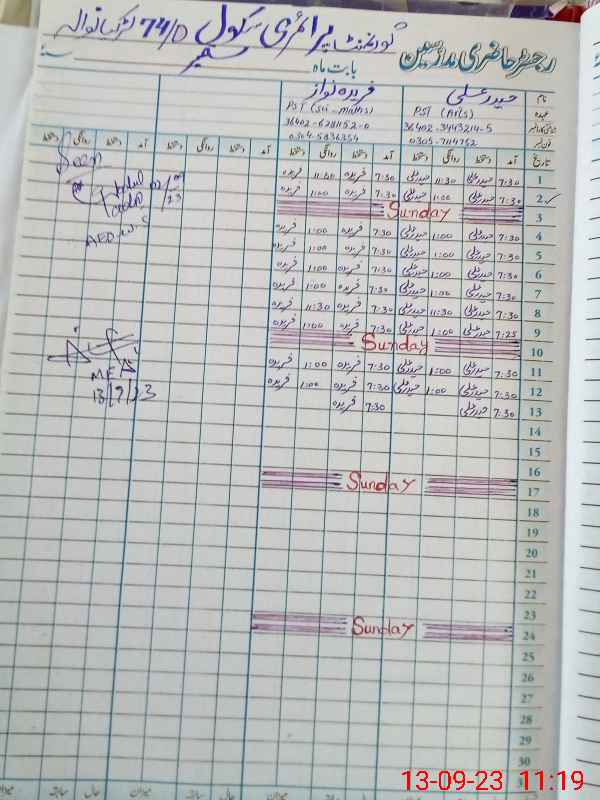 رجسٹر حاضری مدرسین گورنمنٹ پرائمری سکول 74/D لڑکیانوالہ
بابت ماہ ستمبر سنہ
نام حیدر علی فریدہ نواز
عہدہ PST (Arts) PST (Sci-maths)
36402-3443214-5 36402-6281152-0
0305-7114752 0304-5836354
تاریخ آمد دستخط روانگی دستخط آمد دستخط روانگی دستخط آمد دستخط روانگی دستخط آمد دستخط روانگی دستخط
1 7:30 حیدر علی 11:30 حیدر علی 7:30 فریدہ 11:30 فریدہ
2 7:30 حیدر علی 1:00 حیدر علی 7:30 فریدہ 1:00 فریدہ
3 Sunday
4 7:30 حیدر علی 1:00 حیدر علی 7:30 فریدہ 1:00 فریدہ
5 7:30 حیدر علی 1:00 حیدر علی 7:30 فریدہ 1:00 فریدہ
6 7:30 حیدر علی 1:00 حیدر علی 7:30 فریدہ 1:00 فریدہ
7 7:30 حیدر علی 1:00 حیدر علی 7:30 فریدہ 1:00 فریدہ
8 7:30 حیدر علی 11:30 حیدر علی 7:30 فریدہ 11:30 فریدہ
9 7:25 حیدر علی 1:00 حیدر علی 7:30 فریدہ 1:00 فریدہ
10 Sunday
11 7:30 حیدر علی 1:00 حیدر علی 7:30 فریدہ 1:00 فریدہ
12 7:30 حیدر علی 1:00 حیدر علی 7:30 فریدہ 1:00 فریدہ
13 7:30 حیدر علی 7:30 فریدہ
14
15
16
17 Sunday
18
19
20
21
22
23
24 Sunday
25
26
27
28
29
30
Seen
AEO
MEA
13/9/23
میزان سابقہ حال میزان سابقہ حال میزان
13-09-23 11:19